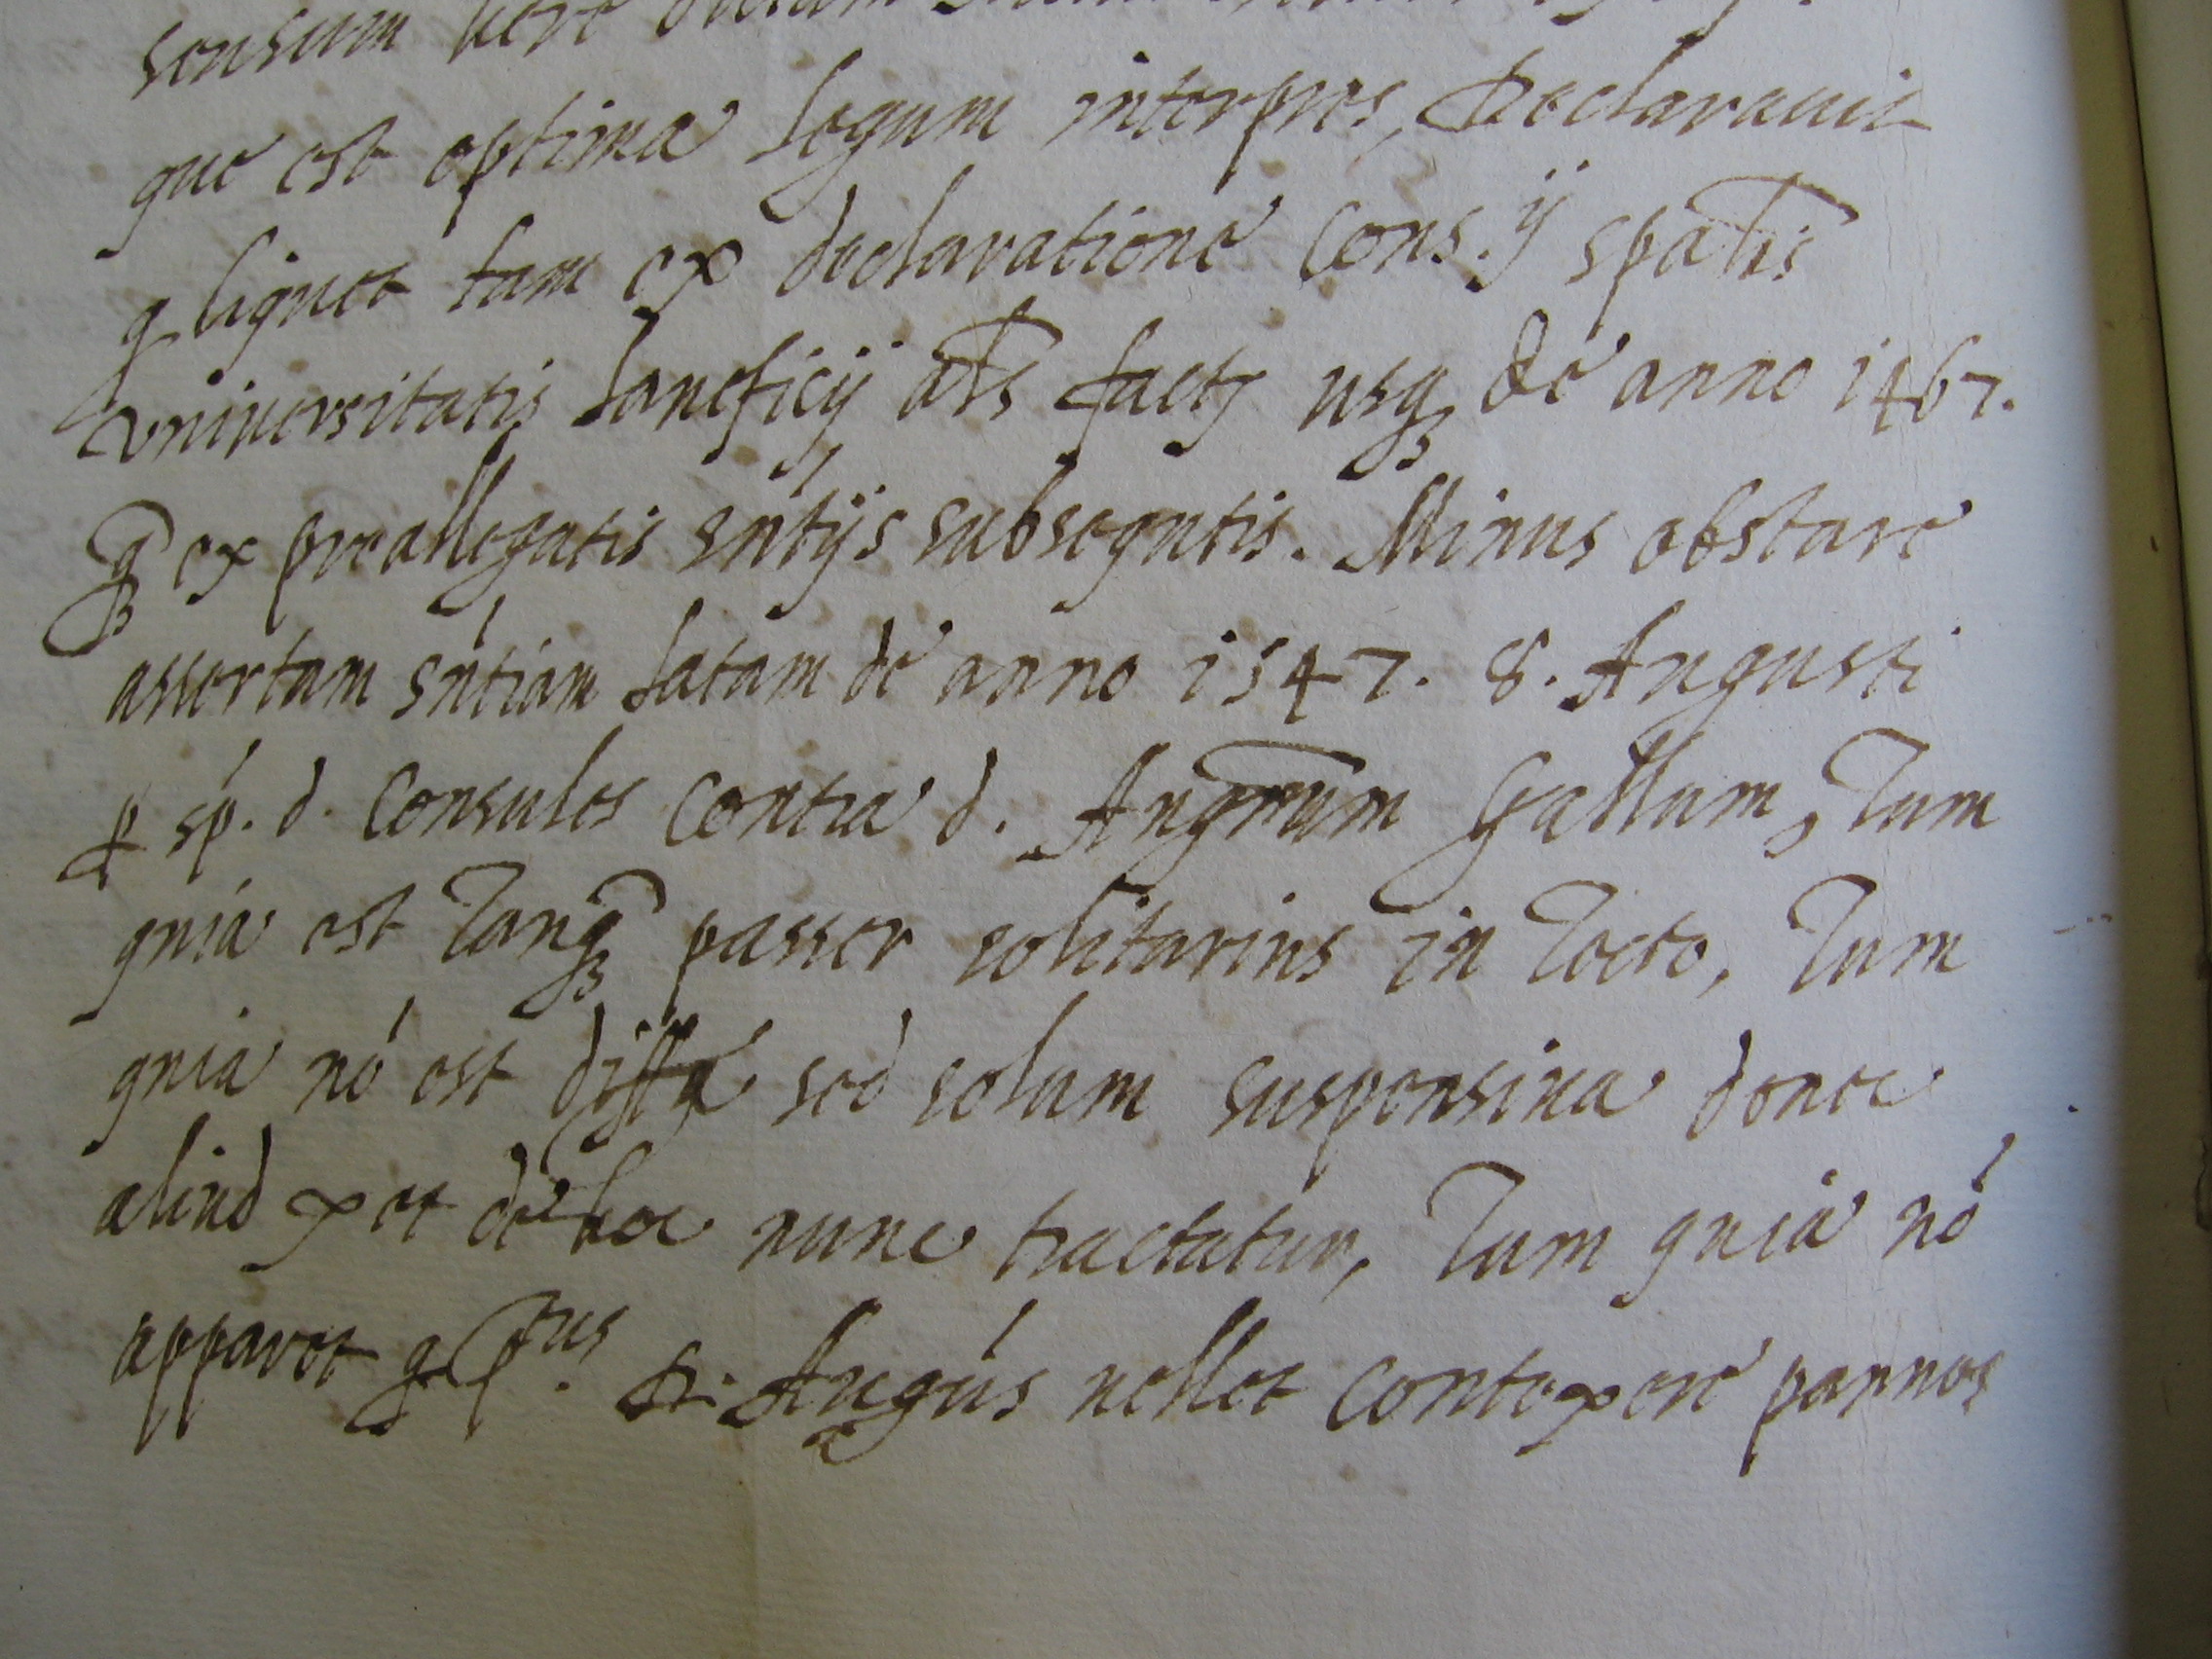 sensum vero
que est optima legum interpres, Declarauit
q liquet tam ex declaratione Cons.ij spalis
vniuersitatis lanificij als facta usq; de anno 1467.
q; ex preallegatis sntijs subsequtis. Minus obstare
assertam sntiam latam de anno 1547. 8. Augusti
p sp. d. Consules contra d. Augrum Gallum, Tum
quia est Tanq; passer solitarius in Tecto, Tum
quia nó est diffa sed solum suspensiua donec
aliud &et de hoc nunc tractatur, Tum quia nó
apparet q ptus D. Augús uellet contexere pannos